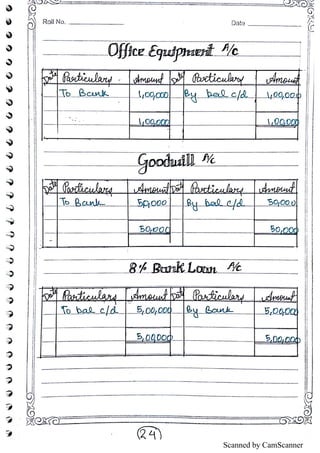 Roll No. Date
Office Equipment A/c
Date Particulars Amount Date Particulars Amount
To Bank 1,00,000 By bal c/d 1,00,000
1,00,000 1,00,000
Goodwill A/c
Date Particulars Amount Date Particulars Amount
To Bank 50,000 By bal c/d 50,000
50,000 50,000
8% Bank Loan A/c
Date Particulars Amount Date Particulars Amount
To bal c/d 5,00,000 By Bank 5,00,000
5,00,000 5,00,000
(24)
Scanned by CamScanner